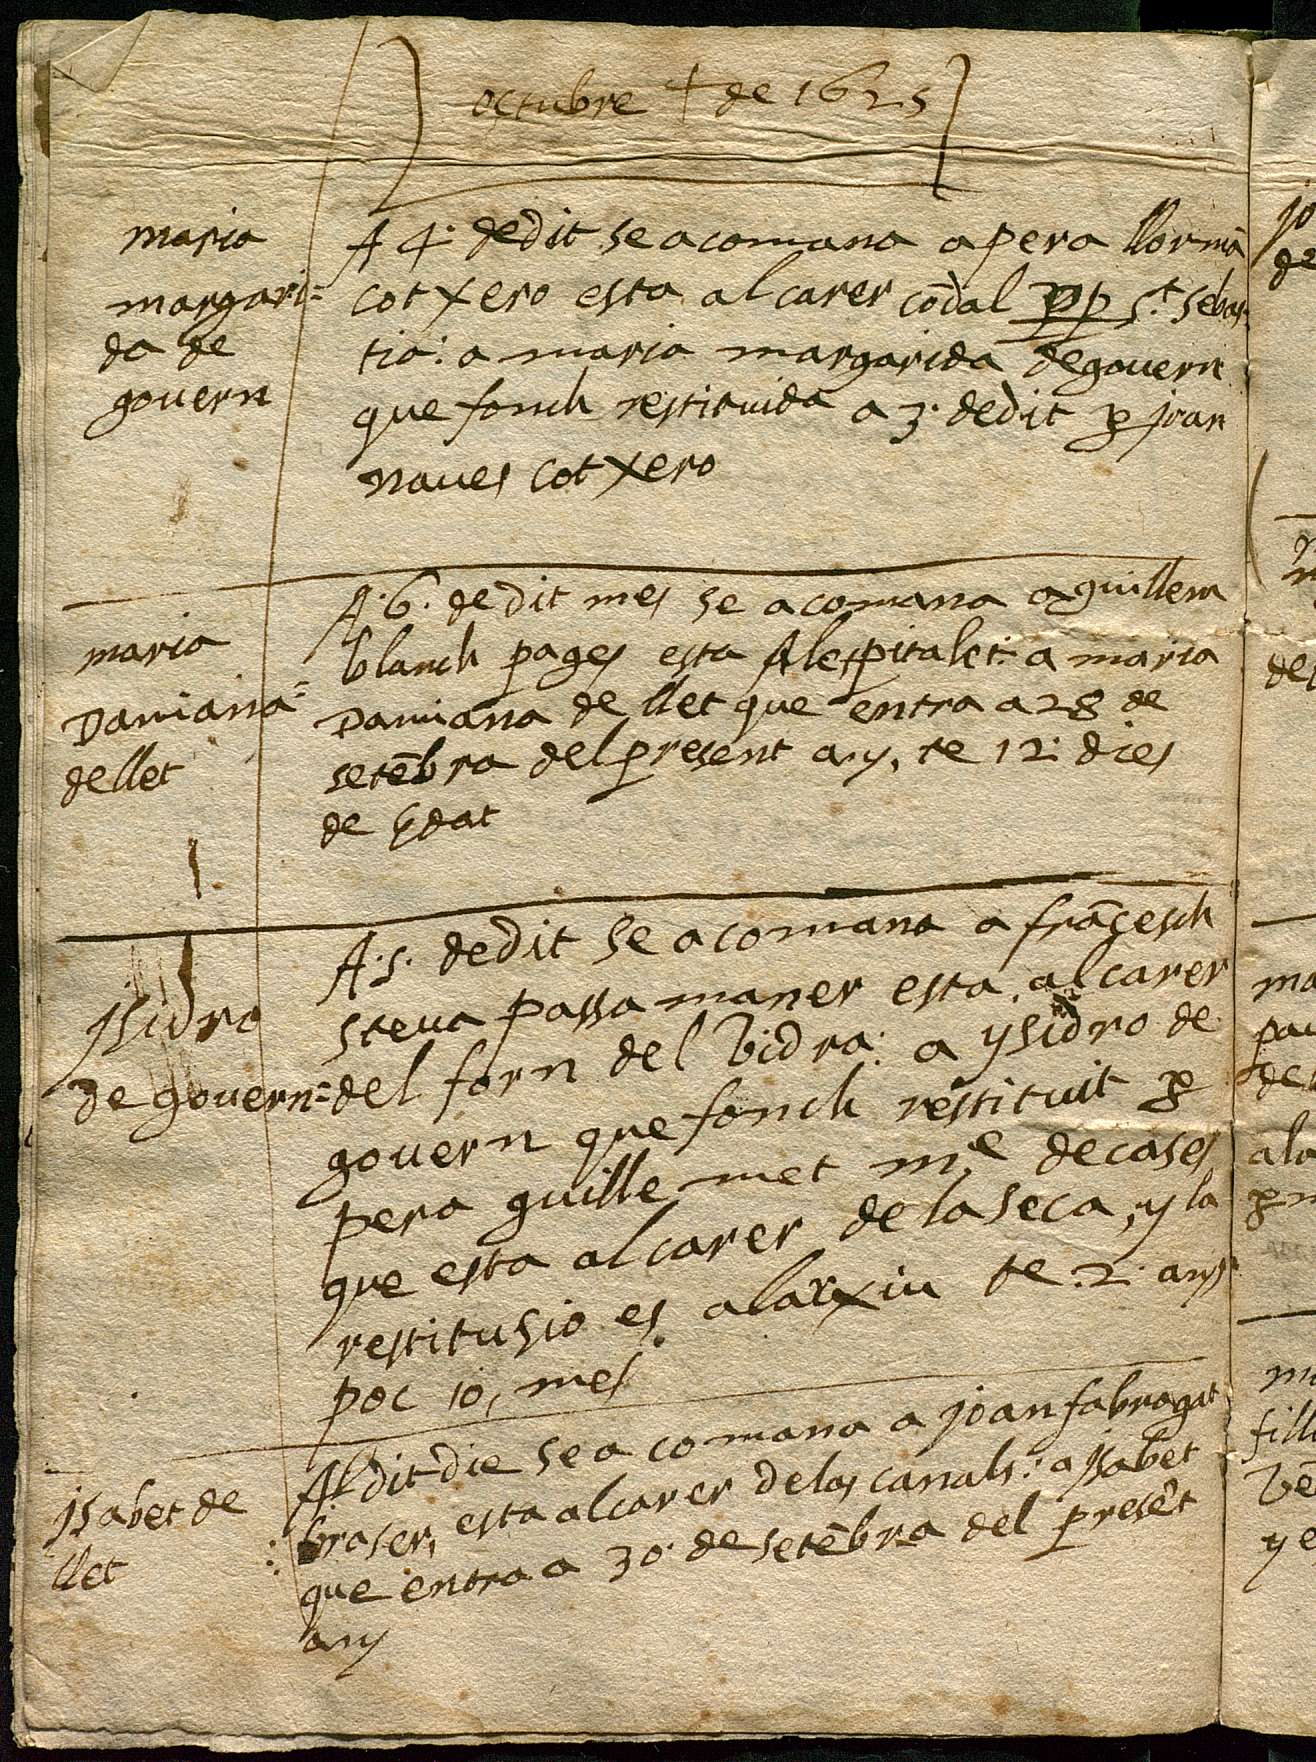 octubre + de 1625
maria
margari=
da de
govern
A 4· de dit se acomana a pera llormā
cotxero esta al carer cōdal pp s.t sebas-
tia: a maria margarida de govern
que fonch restituida a 3· de dit p joan
naves cotxero
maria
Damiana=
de llet
A·6· de dit mes se acomana a guillem
blanch pages esta Alespitalet: a maria
Damiana de llet que entra a 28 de
setēbra del present any, te 12· dies
de Edat
ysidro
de govern=
A·5· de dit se acomana a frāçesch
steva passamaner esta al carer
del forn del vidra: a ysidro de
govern que fonch restituit p
pera guillemet m.e de cases
que esta al carer de la seca, y la
restitusio es alarxiu te ·2· anys
poc 10, mes
ysabet de
llet
Al dit die se a comana a joan fabragat
braser, esta al carer de las canals: a ysabet
que entra a 30· de setēbra del presēt
any